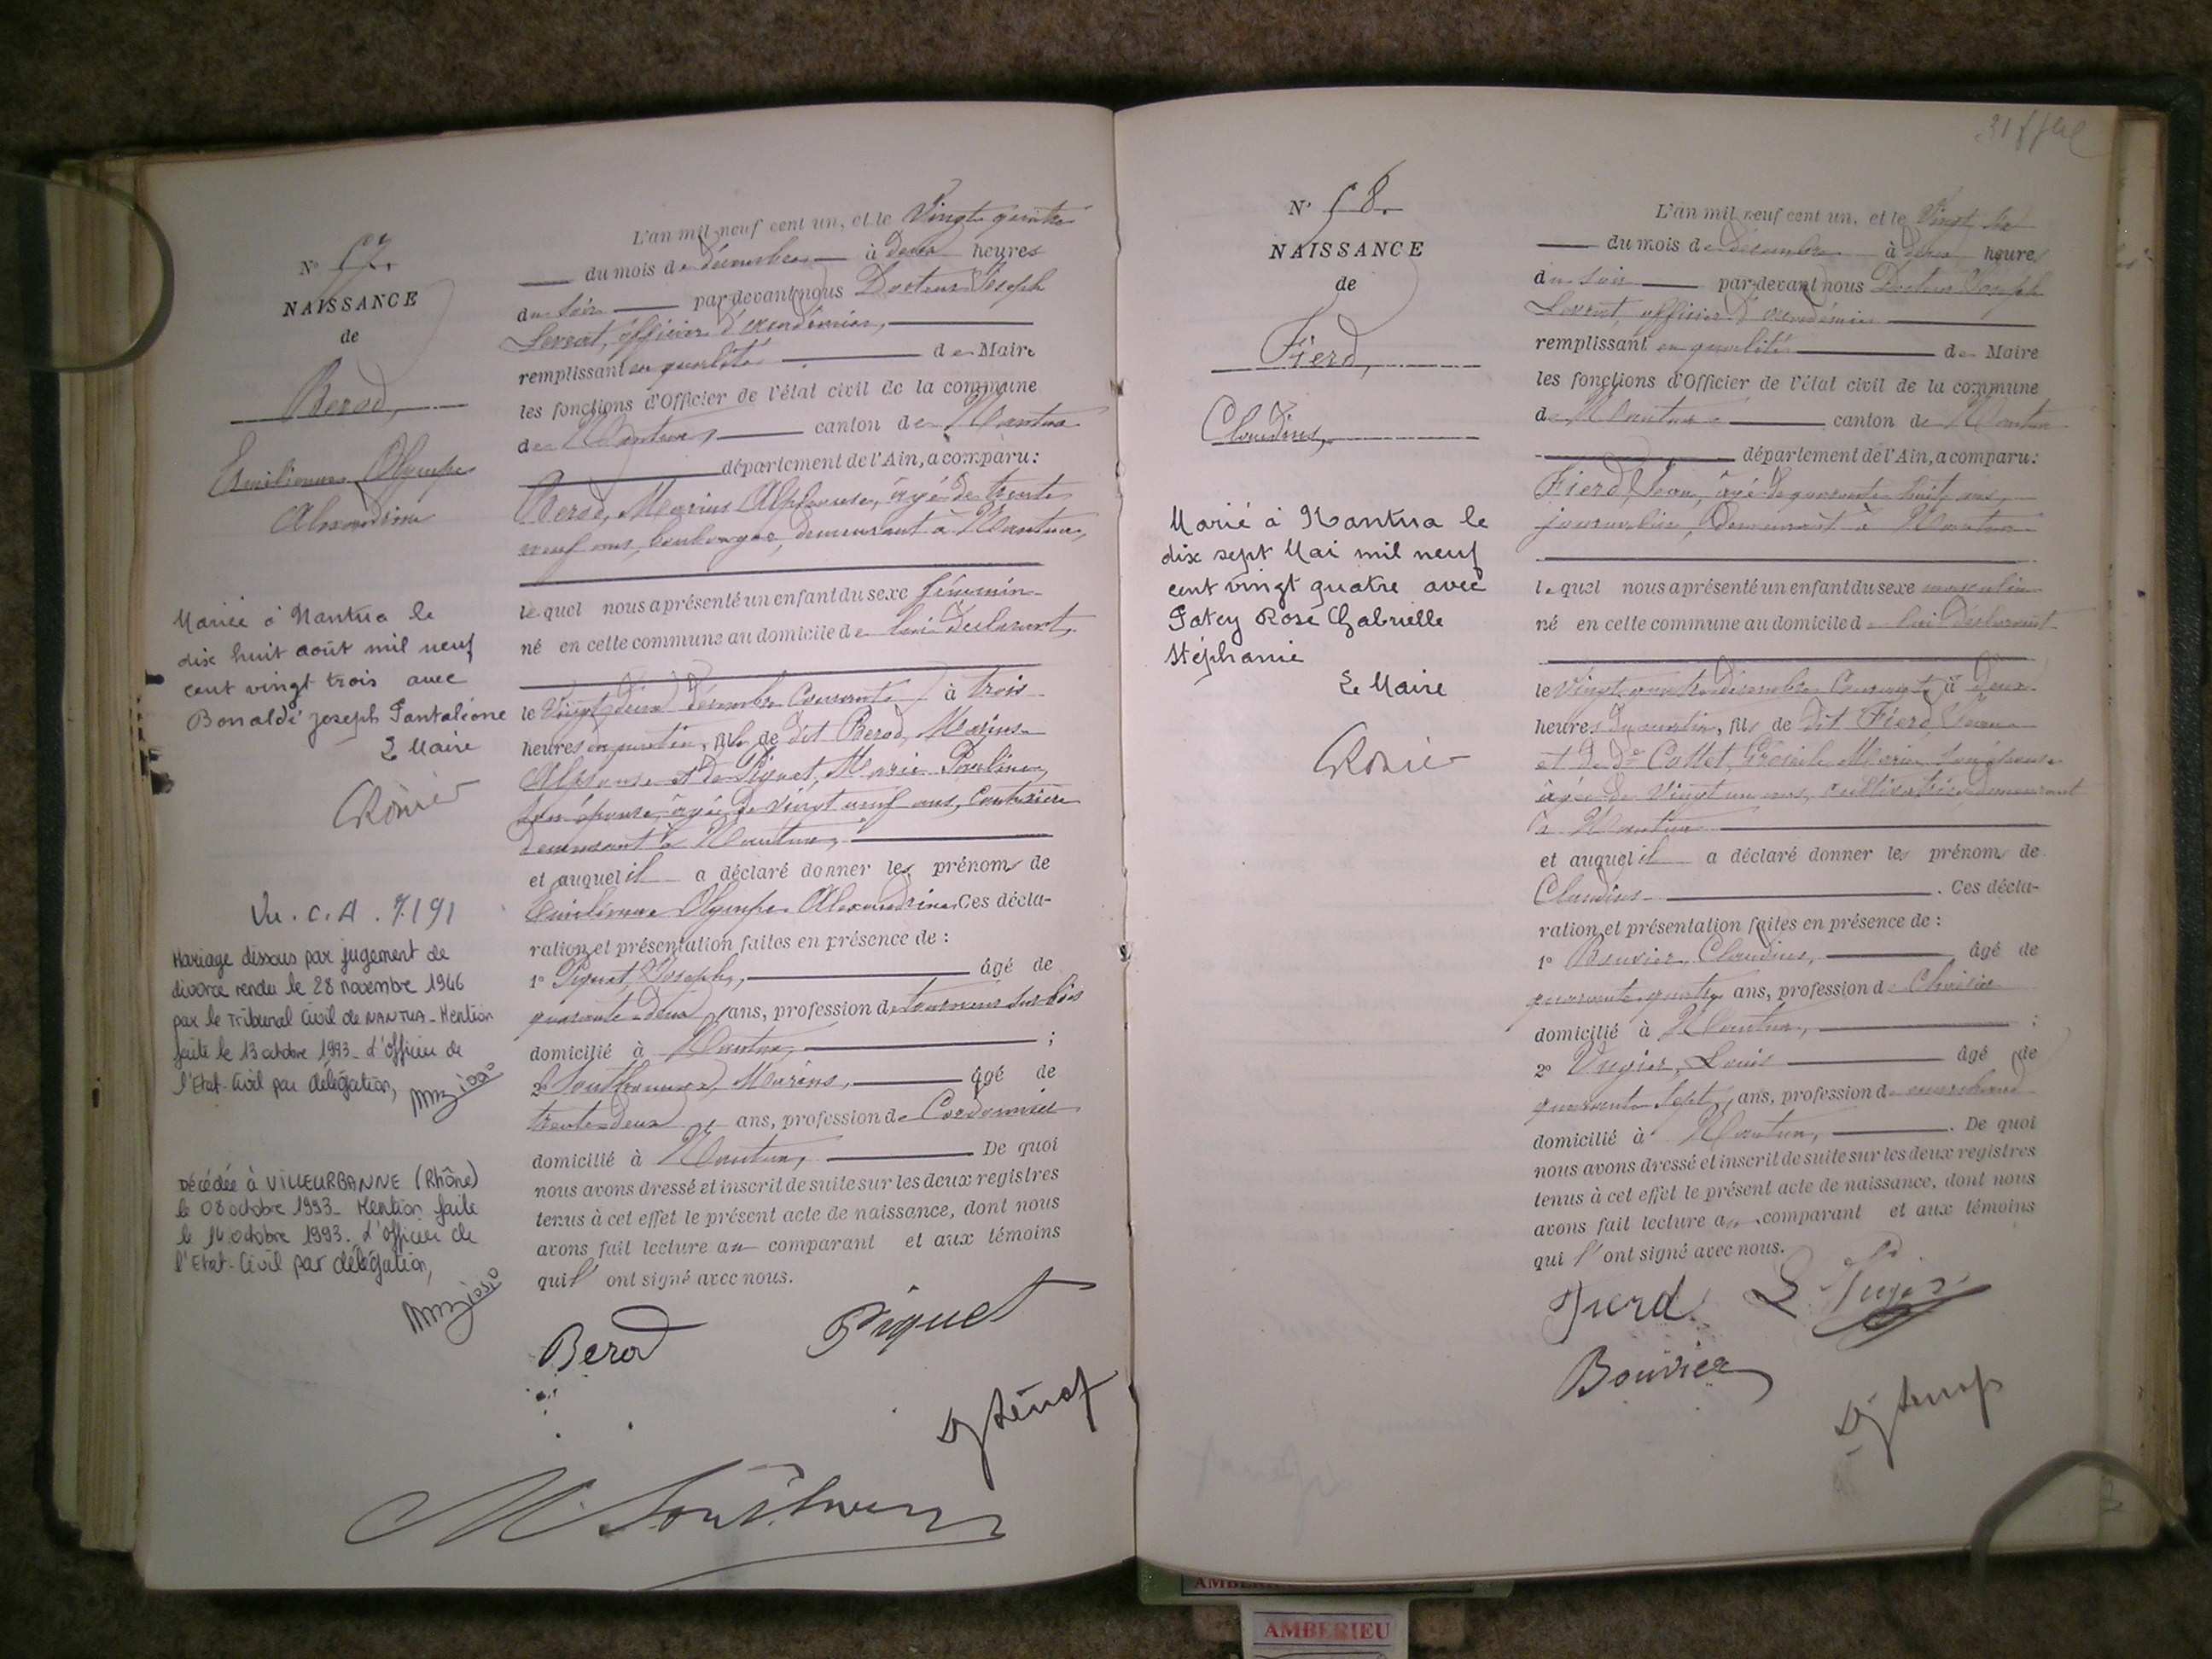 N° 57.
NAISSANCE
de
Berod,
Emilienne Olympe
Alexandrine
Mariée à Nantua le
dix huit août mil neuf
cent vingt trois avec
Bonaldi Joseph Pantaléone
Le Maire
Vu. C.A. 7.191
Mariage dissous par jugement de
divorce rendu le 28 novembre 1946
par le Tribunal Civil de NANTUA - Mention
faite le 13 octobre 1993 - L'officier de
l'Etat-Civil par délégation,
Décédée à VILLEURBANNE (Rhône)
le 08 octobre 1993 - Mention faite
le 14 octobre 1993. L'officier de
l'Etat-Civil par délégation,
L'an mil neuf cent un, et le Vingt quatre
du mois de décembre à deux heures
du soir par-devant nous Docteur Joseph
Levrat, officier d'académie,
remplissant en qualité de Maire
les fonctions d'Officier de l'état civil de la commune
de Nantua, canton de Nantua
département de l'Ain, a comparu :
Berod, Marius Alphonse, âgé de trente
neuf ans, demeurant à Nantua,
lequel nous a présenté un enfant du sexe féminin
né en cette commune au domicile de lui déclarant,
le Vingt deux décembre Courant à trois
heures du matin, fille de dit Berod, Marius
Alphonse et de Piquet, Marie Pauline,
son épouse âgée de vingt neuf ans, couturière
demeurant à Nantua,
et auquel il a déclaré donner les prénoms de
Emilienne Olympe Alexandrine Ces décla-
ration et présentation faites en présence de :
1° Piquet, Joseph, âgé de
quarante-deux ans, profession de tourneur sur bois
domicilié à Nantua, ;
2° Southonnax, Marius, âgé de
trente-deux ans, profession de Cordonnier
domicilié à Nantua, De quoi
nous avons dressé et inscrit de suite sur les deux registres
tenus à cet effet le présent acte de naissance, dont nous
avons fait lecture au comparant et aux témoins
qui l' ont signé avec nous.
Berod Piquet
N° 58.
NAISSANCE
de
Fierd,
Claudius,
Marié à Nantua le
dix sept Mai mil neuf
cent vingt quatre avec
Patey Rose Gabrielle
Stéphanie
Le Maire
L'an mil neuf cent un, et le Vingt six
du mois de décembre à deux heures
du soir par-devant nous Docteur Joseph
Levrat, officier d'académie
remplissant en qualité de Maire
les fonctions d'Officier de l'état civil de la commune
de Nantua canton de Nantua
département de l'Ain, a comparu :
Fierd, Jean, âgé de quarante huit ans,
journalier, demeurant à Nantua
lequel nous a présenté un enfant du sexe masculin
né en cette commune au domicile de lui déclarant
le Vingt quatre décembre Courant, à deux
heures du matin, fils de dit Fierd, Jean
et de Marie son épouse
âgée de Vingt un ans, cultivatrice demeurant
à Nantua
et auquel il a déclaré donner les prénoms de
Claudius . Ces décla-
ration et présentation faites en présence de :
1° Bouvier, Claudius, âgé de
quarante-quatre ans, profession de
domicilié à Nantua, ;
2° Louis âgé de
quarante sept ans, profession de marchand
domicilié à Nantua, . De quoi
nous avons dressé et inscrit de suite sur les deux registres
tenus à cet effet le présent acte de naissance, dont nous
avons fait lecture au comparant et aux témoins
qui l' ont signé avec nous.
Fierd
Bouvier
AMBERIEU